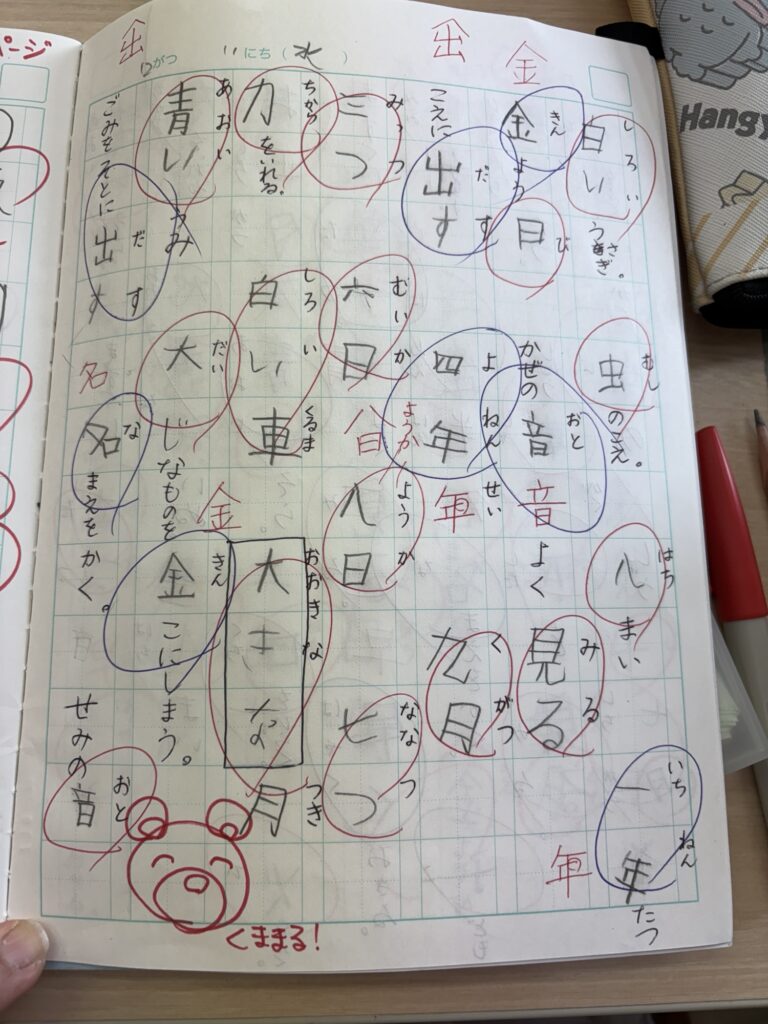 ページ
がつ 11にち(水)
出
出
金
しろい
白いうさぎ。
むし
虫のこえ。
はち
八まい
いちねん
一年たつ
年
きん び
金よう日
かぜの音
おと
音
よく見る
みる
こえに出す
だす
よねんせい
四年せい
年
くがつ
九月
みっつ
三つ
むいか
六日
ようか
八日
ようか
八日
ななつ
七つ
ちから
力をいれる。
しろいくるま
白い車
おおきなつき
大きな月
金
あおい
青いうみ
だい
大じなものを
きん
金こにしまう。
ごみをそとに出す
だす
名
な
名まえをかく。
おと
せみの音
くままる!
Hangy